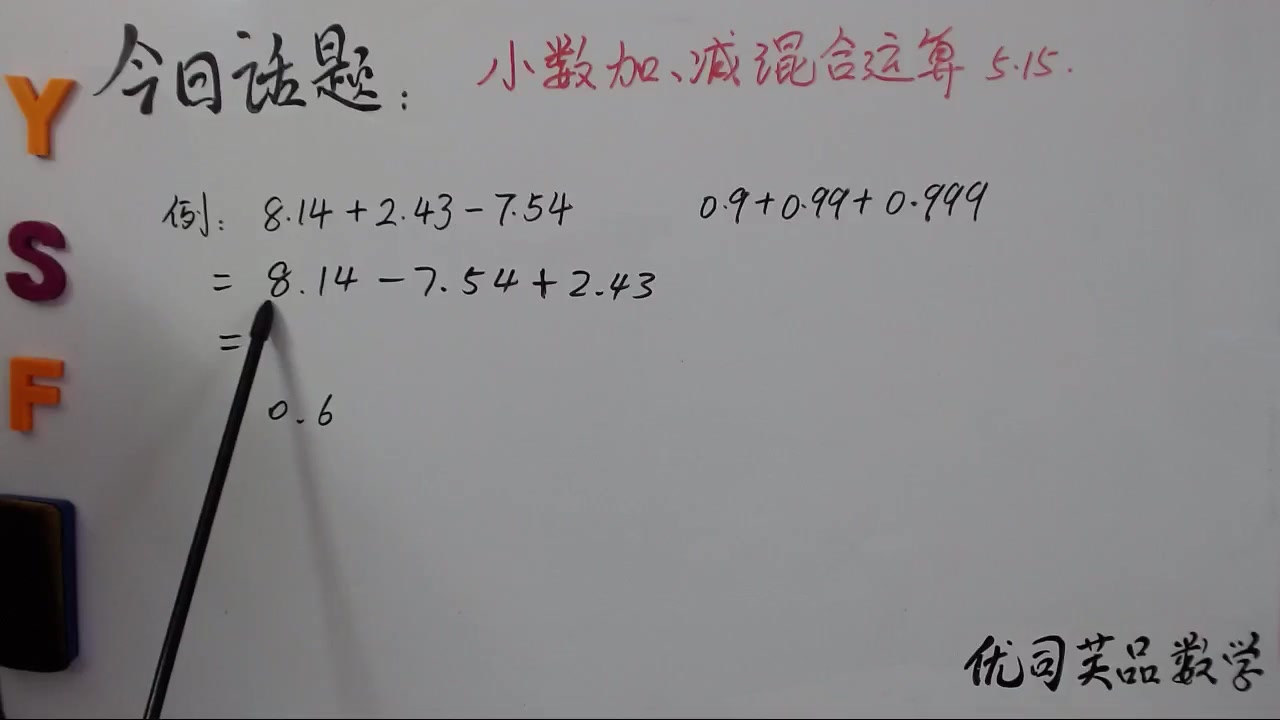 今日话题：
小数加、减混合运算 5.15.
Y
S
F
例: 8.14+2.43-7.54
0.9+0.99+0.999
= 8.14-7.54+2.43
=
0.6
优司芙品数学